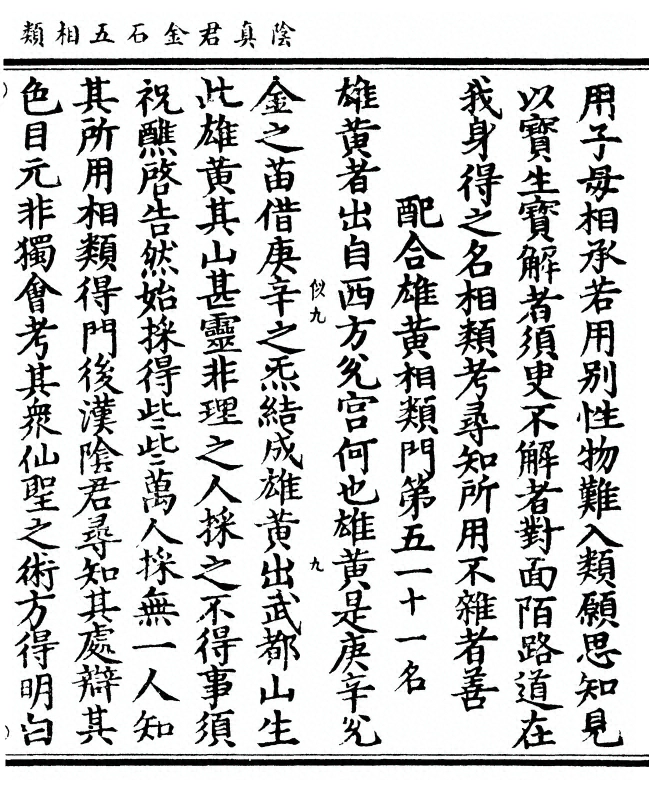 陰真君金石五相類
用子母相承若用別性物難入類願思知見
以寶生寶解者須史不解者對面陌路道在
我身得之名相類考尋知所用不雜者善
配合雄黃相類門第五一十一名
雄黃者出自西方兊宮何也雄黃是庚辛兊
似九
九
金之苗借庚辛之炁結成雄黃出武都山生
此雄黃其山甚靈非理之人採之不得事須
祝醮啓告然始採得些些萬人採無一人知
其所用相類得門後漢陰君尋知其處辯其
色目元非獨會考其衆仙聖之術方得明白